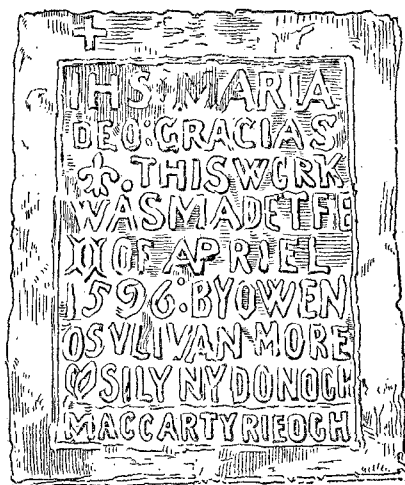 IHS MARIA
DEO:GRACIAS
THIS WORK
WAS MADE THE
II OF APRIEL
1596:BY OWEN
OSVLIVAN MORE
SILY NY DONOGH
MACCARTY RIEOGH